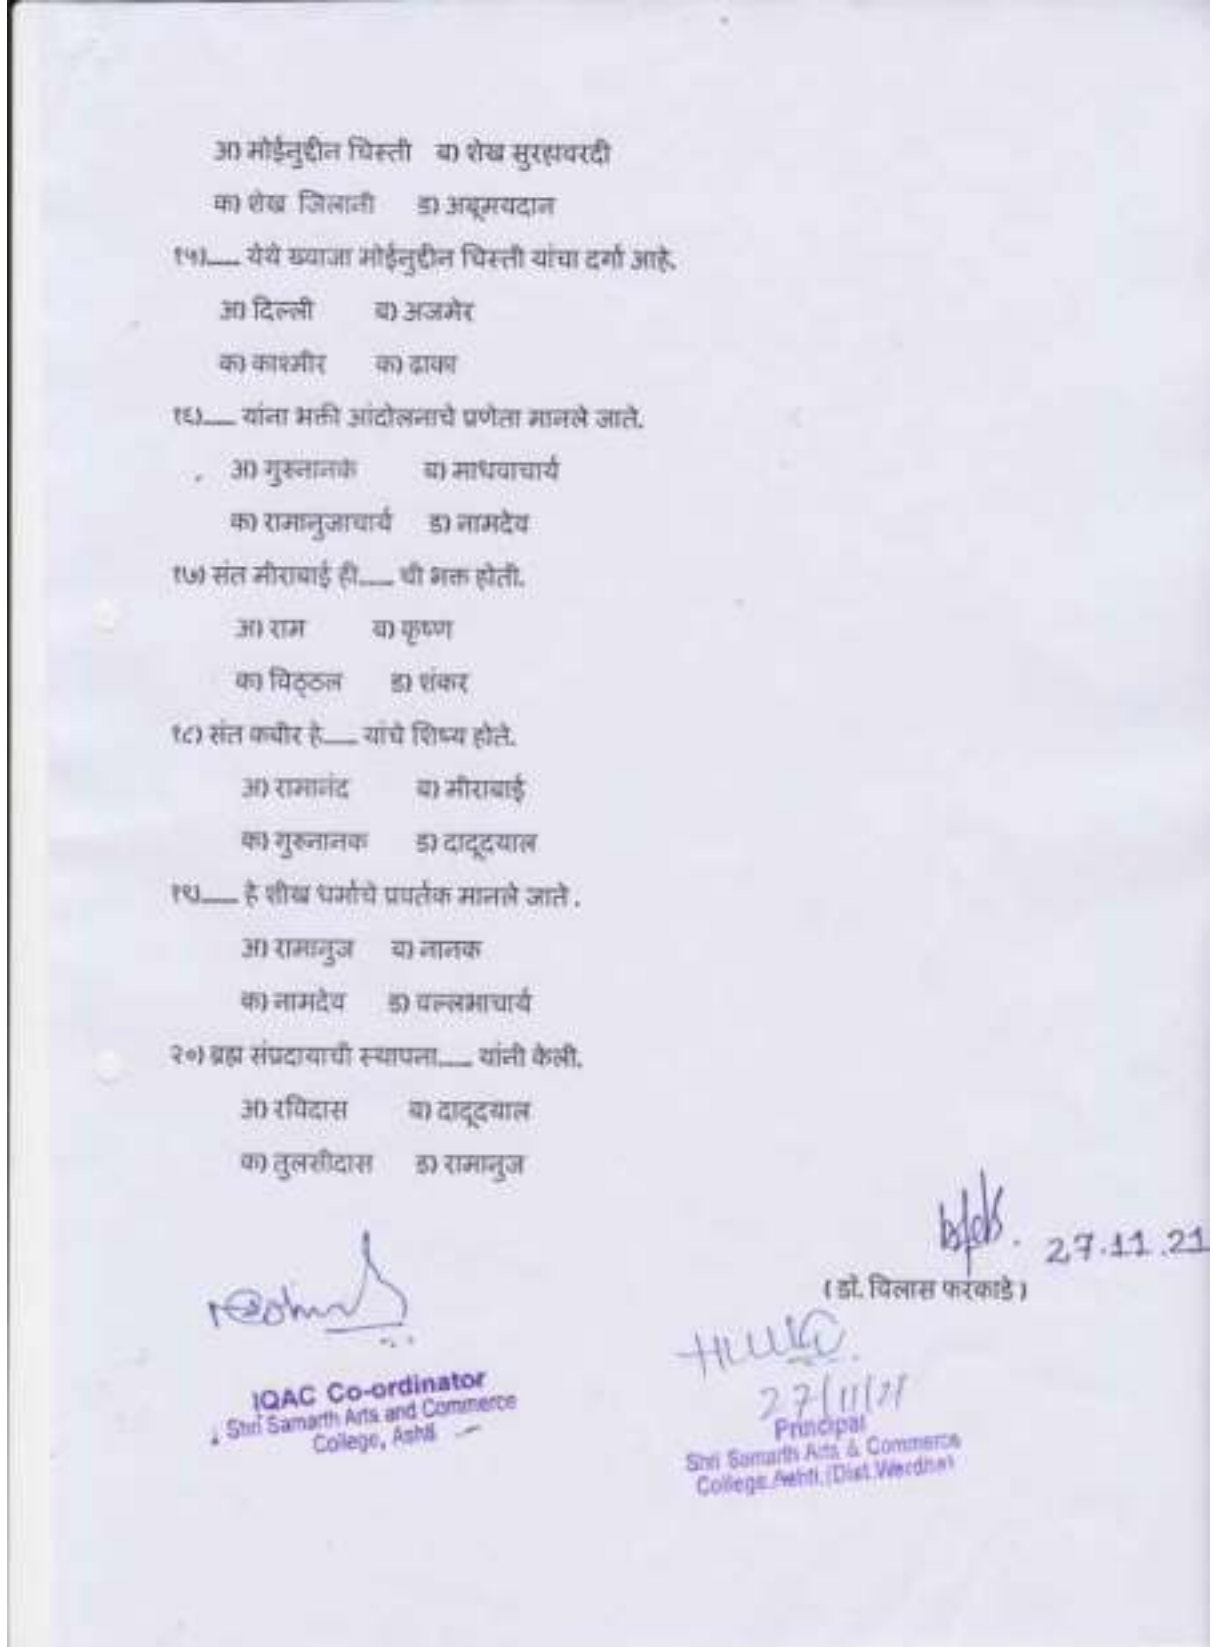 अ) मोईनुद्दीन चिस्ती ब) शेख सुरहावरदी
क) शेख जिलानी ड) अबूमयदान
१५)___ येथे ख्वाजा मोईनुद्दीन चिस्ती यांचा दर्गा आहे.
अ) दिल्ली ब) अजमेर
क) काश्मीर क) ढाका
१६)___ यांना भक्ती आंदोलनाचे प्रणेता मानले जाते.
अ) गुरुनानक ब) माधवाचार्य
क) रामानुजाचार्य ड) नामदेव
१७) संत मीराबाई ही___ ची भक्त होती.
अ) राम ब) कृष्ण
क) विठ्ठल ड) शंकर
१८) संत कबीर हे___ यांचे शिष्य होते.
अ) रामानंद ब) मीराबाई
क) गुरुनानक ड) दादूदयाल
१९)___ हे शीख धर्माचे प्रवर्तक मानले जाते .
अ) रामानुज ब) नानक
क) नामदेव ड) वल्लभाचार्य
२०) ब्रह्म संप्रदायाची स्थापना___ यांनी केली.
अ) रविदास ब) दादूदयाल
क) तुलसीदास ड) रामानुज
27.11.21
( डॉ. विलास फरकाडे )
27/11/21
IQAC Co-ordinator
Shri Samarth Arts and Commerce
College, Ashti
Principal
Shri Samarth Arts & Commerce
College Ashti, (Dist.Wardha)